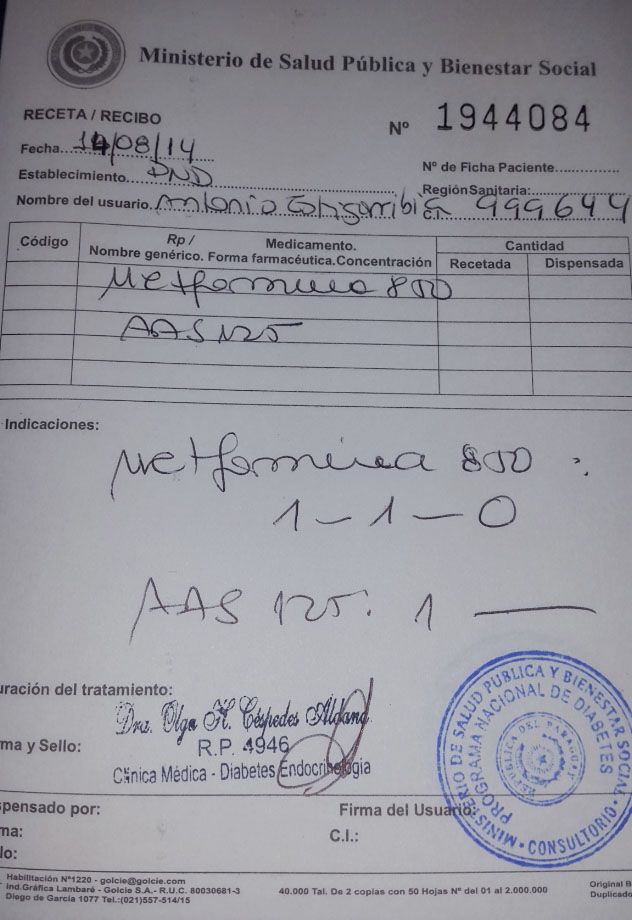 Ministerio de Salud Pública y Bienestar Social
RECETA / RECIBO
Nº 1944084
Fecha 14/08/14
Nº de Ficha Paciente
Establecimiento PND
Región Sanitaria:
Nombre del usuario Antonio 999644
Código Rp / Medicamento. Cantidad
Nombre genérico. Forma farmacéutica. Concentración Recetada Dispensada
Metformina 850
AAS 125
Indicaciones:
Metformina 850 :
1 - 1 - 0
AAS 125: 1 ———
uración del tratamiento:
Dra. Olga H. Céspedes
ma y Sello:
R.P. 4946
Clínica Médica - Diabetes Endocrinología
MINISTERIO DE SALUD PUBLICA Y BIENESTAR SOCIAL
PROGRAMA NACIONAL DE DIABETES
REPUBLICA DEL PARAGUAY
CONSULTORIO
spensado por:
Firma del Usuario:
ma:
C.I.:
lo:
Habilitación Nº1220 - golcie@golcie.com
Ind.Gráfica Lambaré - Golcie S.A.- R.U.C. 80030681-3 40.000 Tal. De 2 copias con 50 Hojas Nº del 01 al 2.000.000 Original B
Diego de García 1077 Tel.:(021)557-514/15 Duplicado